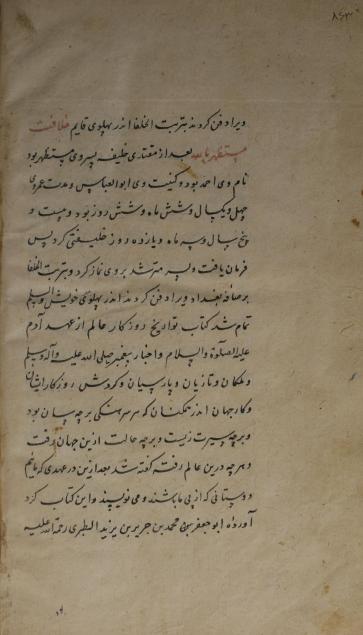 ۸۶۳
ویرا دفن کردند بتربت الخلفا اندر پهلوی قایم خلافت
مستظهر بالله بعد از مقتدی خلیفه پسر وی مستظهر بود
نام وی احمد بود و کنیت وی ابوالعباس و مدت عمر وی
چهل و یک سال و شش ماه و شش روز بود و بیست و
پنج سال و سه ماه و یازده روز خلیفتی کرد پس
فرمان یافت و پسر مسترشد بر وی نماز کرد و بتربت الخلفا
برصافه بغداد ویرا دفن کردند اندر پهلوی خویش والسلم
تمام شد کتاب تواریخ روزکار عالم از عهد آدم
علیه الصلوة والسلام و اخبار پیغمبر صلی الله علیه و آله وسلم
و ملکان و تازیان و پارسیان و کردش روزکار ایشان
و کار جهان اندر نمکنان که هر یکی بر چه سان بود
و بر چه سیرت زیست و بر چه حالت ازین جهان رفت
و هر چه درین عالم رفته گفته شد بعد ازین در عهدی که مائیم
و دوستانی که از پی ما باشند و می نویسند و این کتاب کرد
آورده ابوجعفر بن محمد بن جریر بن یزید الطبری رحمة الله علیه